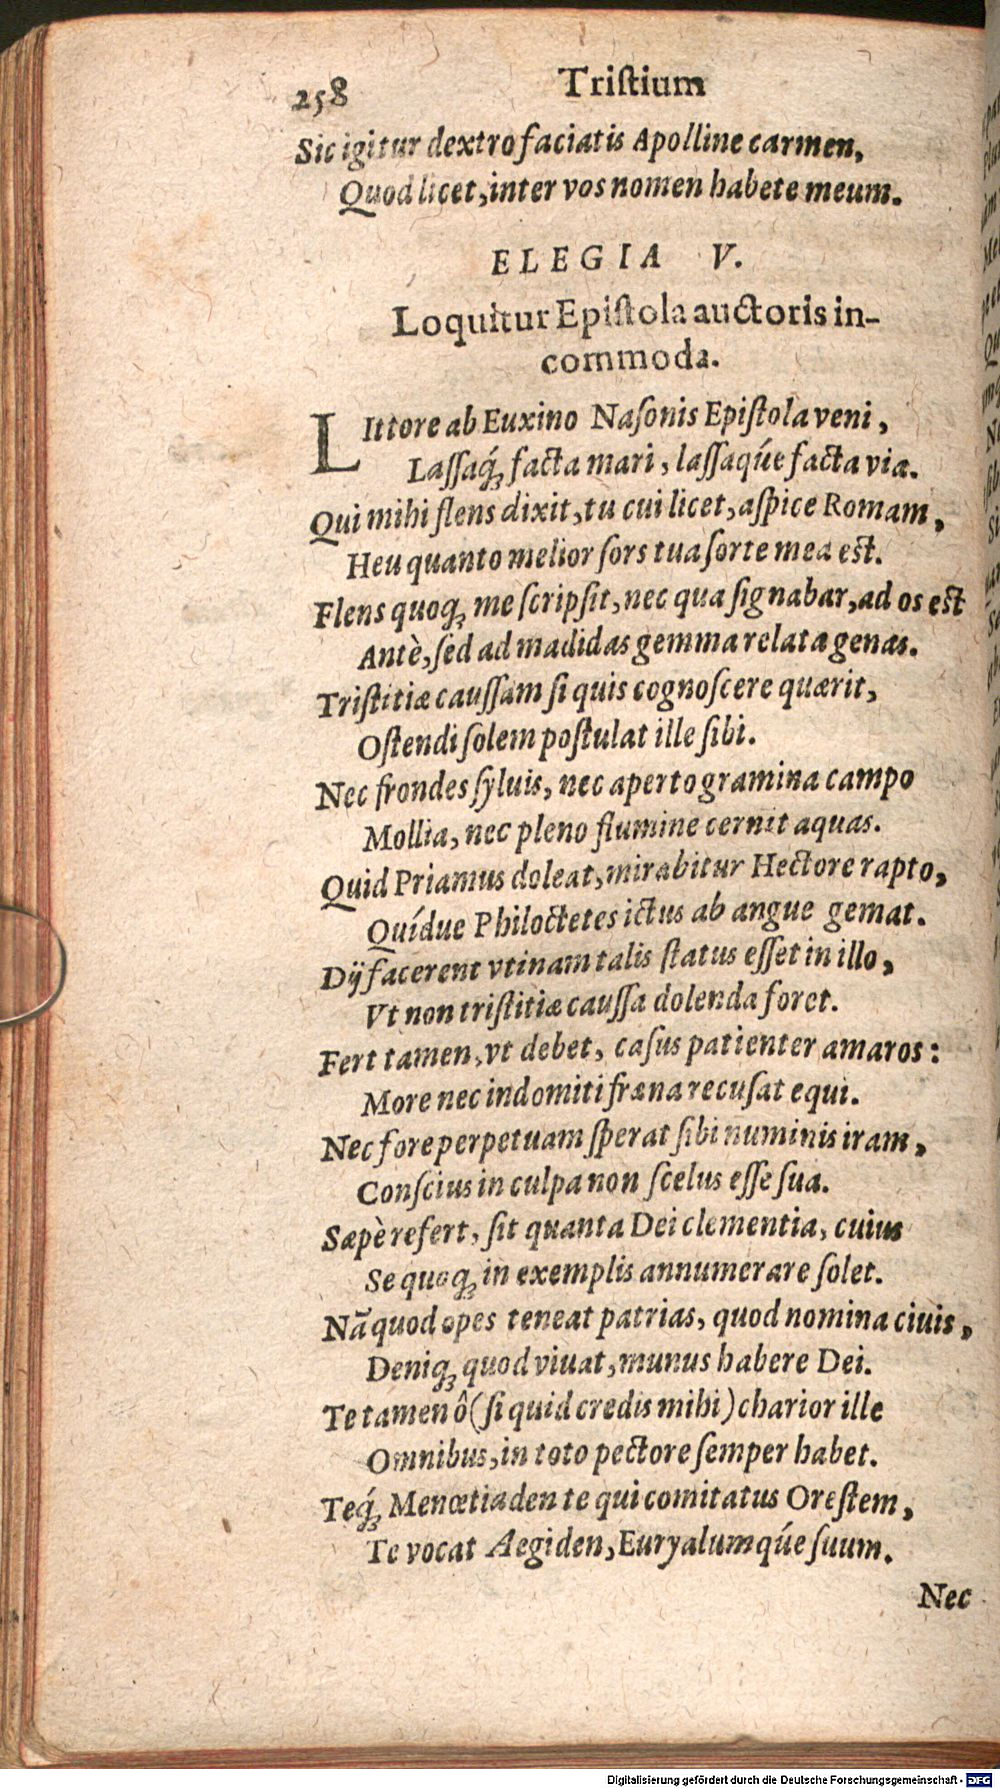 258 Triſtium
Sic igitur dextro faciatis Apolline carmen,
Quod licet, inter vos nomen habete meum.
ELEGIA V.
Loquitur Epiſtola auctoris in-
commoda.
LIttore ab Euxino Naſonis Epiſtola veni,
Laſſaq́; facta mari, laſſaqúe facta via.
Qui mihi flens dixit, tu cui licet, aſpice Romam,
Heu quanto melior ſors tua ſorte mea eſt.
Flens quoq; me ſcripſit, nec qua ſignabar, ad os eſt
Antè, ſed ad madidas gemma relata genas.
Triſtitiæ cauſſam ſi quis cognoſcere quærit,
Oſtendi ſolem poſtulat ille ſibi.
Nec frondes ſyluis, nec aperto gramina campo
Mollia, nec pleno flumine cernit aquas.
Quid Priamus doleat, mirabitur Hectore rapto,
Quídue Philoctetes ictus ab angue gemat.
Dij facerent vtinam talis ſtatus eſſet in illo,
Vt non triſtitiæ cauſſa dolenda foret.
Fert tamen, vt debet, caſus patienter amaros:
More nec indomiti fræna recuſat equi.
Nec fore perpetuam ſperat ſibi numinis iram,
Conſcius in culpa non ſcelus eſſe ſua.
Sæpè refert, ſit quanta Dei clementia, cuius
Se quoq; in exemplis annumerare ſolet.
Nā quod opes teneat patrias, quod nomina ciuis,
Deniq; quod viuat, munus habere Dei.
Te tamen ô (ſi quid credis mihi) charior ille
Omnibus, in toto pectore ſemper habet.
Teq́; Menœtiaden te qui comitatus Oreſtem,
Te vocat Aegiden, Euryalumqúe ſuum.
Nec
Digitalisierung gefördert durch die Deutsche Forschungsgemeinschaft - DFG